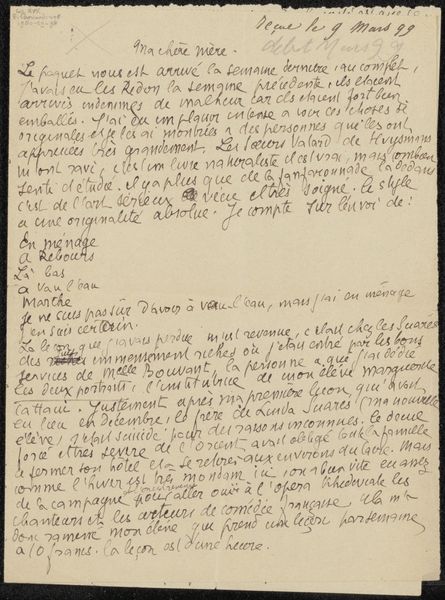 Reçue le 9 Mars 99
début Mars 99
Ma chère mère.
Le paquet nous est arrivé la semaine dernière, au complet,
J'avais eu les Redon la semaine précédente, ils étaient
arrivés indemnes de malheur car ils étaient fort bien
emballés. J'ai eu un plaisir intense à voir ces choses si
originales et je les ai montrées à des personnes qui les ont
appréciées très grandement. Les Sœurs Vatard de Huysmans
m'ont ravi, c'est un livre naturaliste c'est vrai, mais combien
senti et étudié. il y a plus que de la fanfaronnade là dedans
c'est de l'art sérieux vécu et très soigné. le style
a une originalité absolue. Je compte sur l'envoi de :
En ménage
A Rebours
Là bas
à vau l'eau
Marthe
je ne suis pas sûr d'avoir à vau l'eau, mais j'ai en ménage
j'en suis certain.
La leçon que j'avais perdue m'est revenue, c'était chez les Suarès
des juifs immensément riches où j'étais entré par les bons
services de Melle Bouvant la personne à qui j'ai dédié
les deux portraits, l'institutrice de mon élève marguerite
Cattaui. Justement après ma première leçon qui avait
eu lieu en décembre, le frère de Linda Suarès (ma nouvelle
élève) s'était suicidé pour des raisons inconnues. le deuil
forcé et très sévère de l'Orient avait obligé toute la famille
à fermer son hôtel et à se retirer aux environs du Caire. Mais
comme l'hiver est très mondain ici on a bien vite eu assez
de la campagne pour aller ouïr à l'opéra Khédivale les
chanteurs et les acteurs de comédie française, cela m'a
donc ramené mon élève qui prend une leçon par semaine
à 10 francs. la leçon est d'une heure.